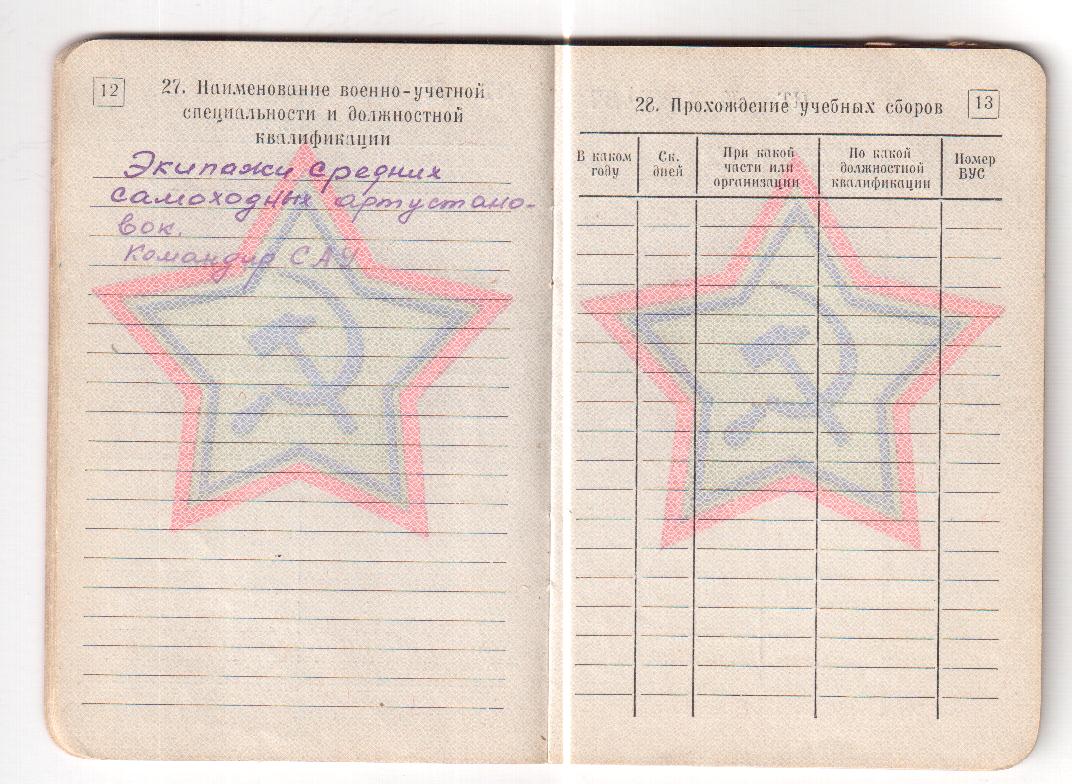 12
27. Наименование военно-учетной
специальности и должностной
квалификации
Экипажи средних
самоходных артустано-
вок.
Командир САУ
28. Прохождение учебных сборов
13
В каком
году
Ск.
дней
При какой
части или
организации
По какой
должностной
квалификации
Номер
ВУС